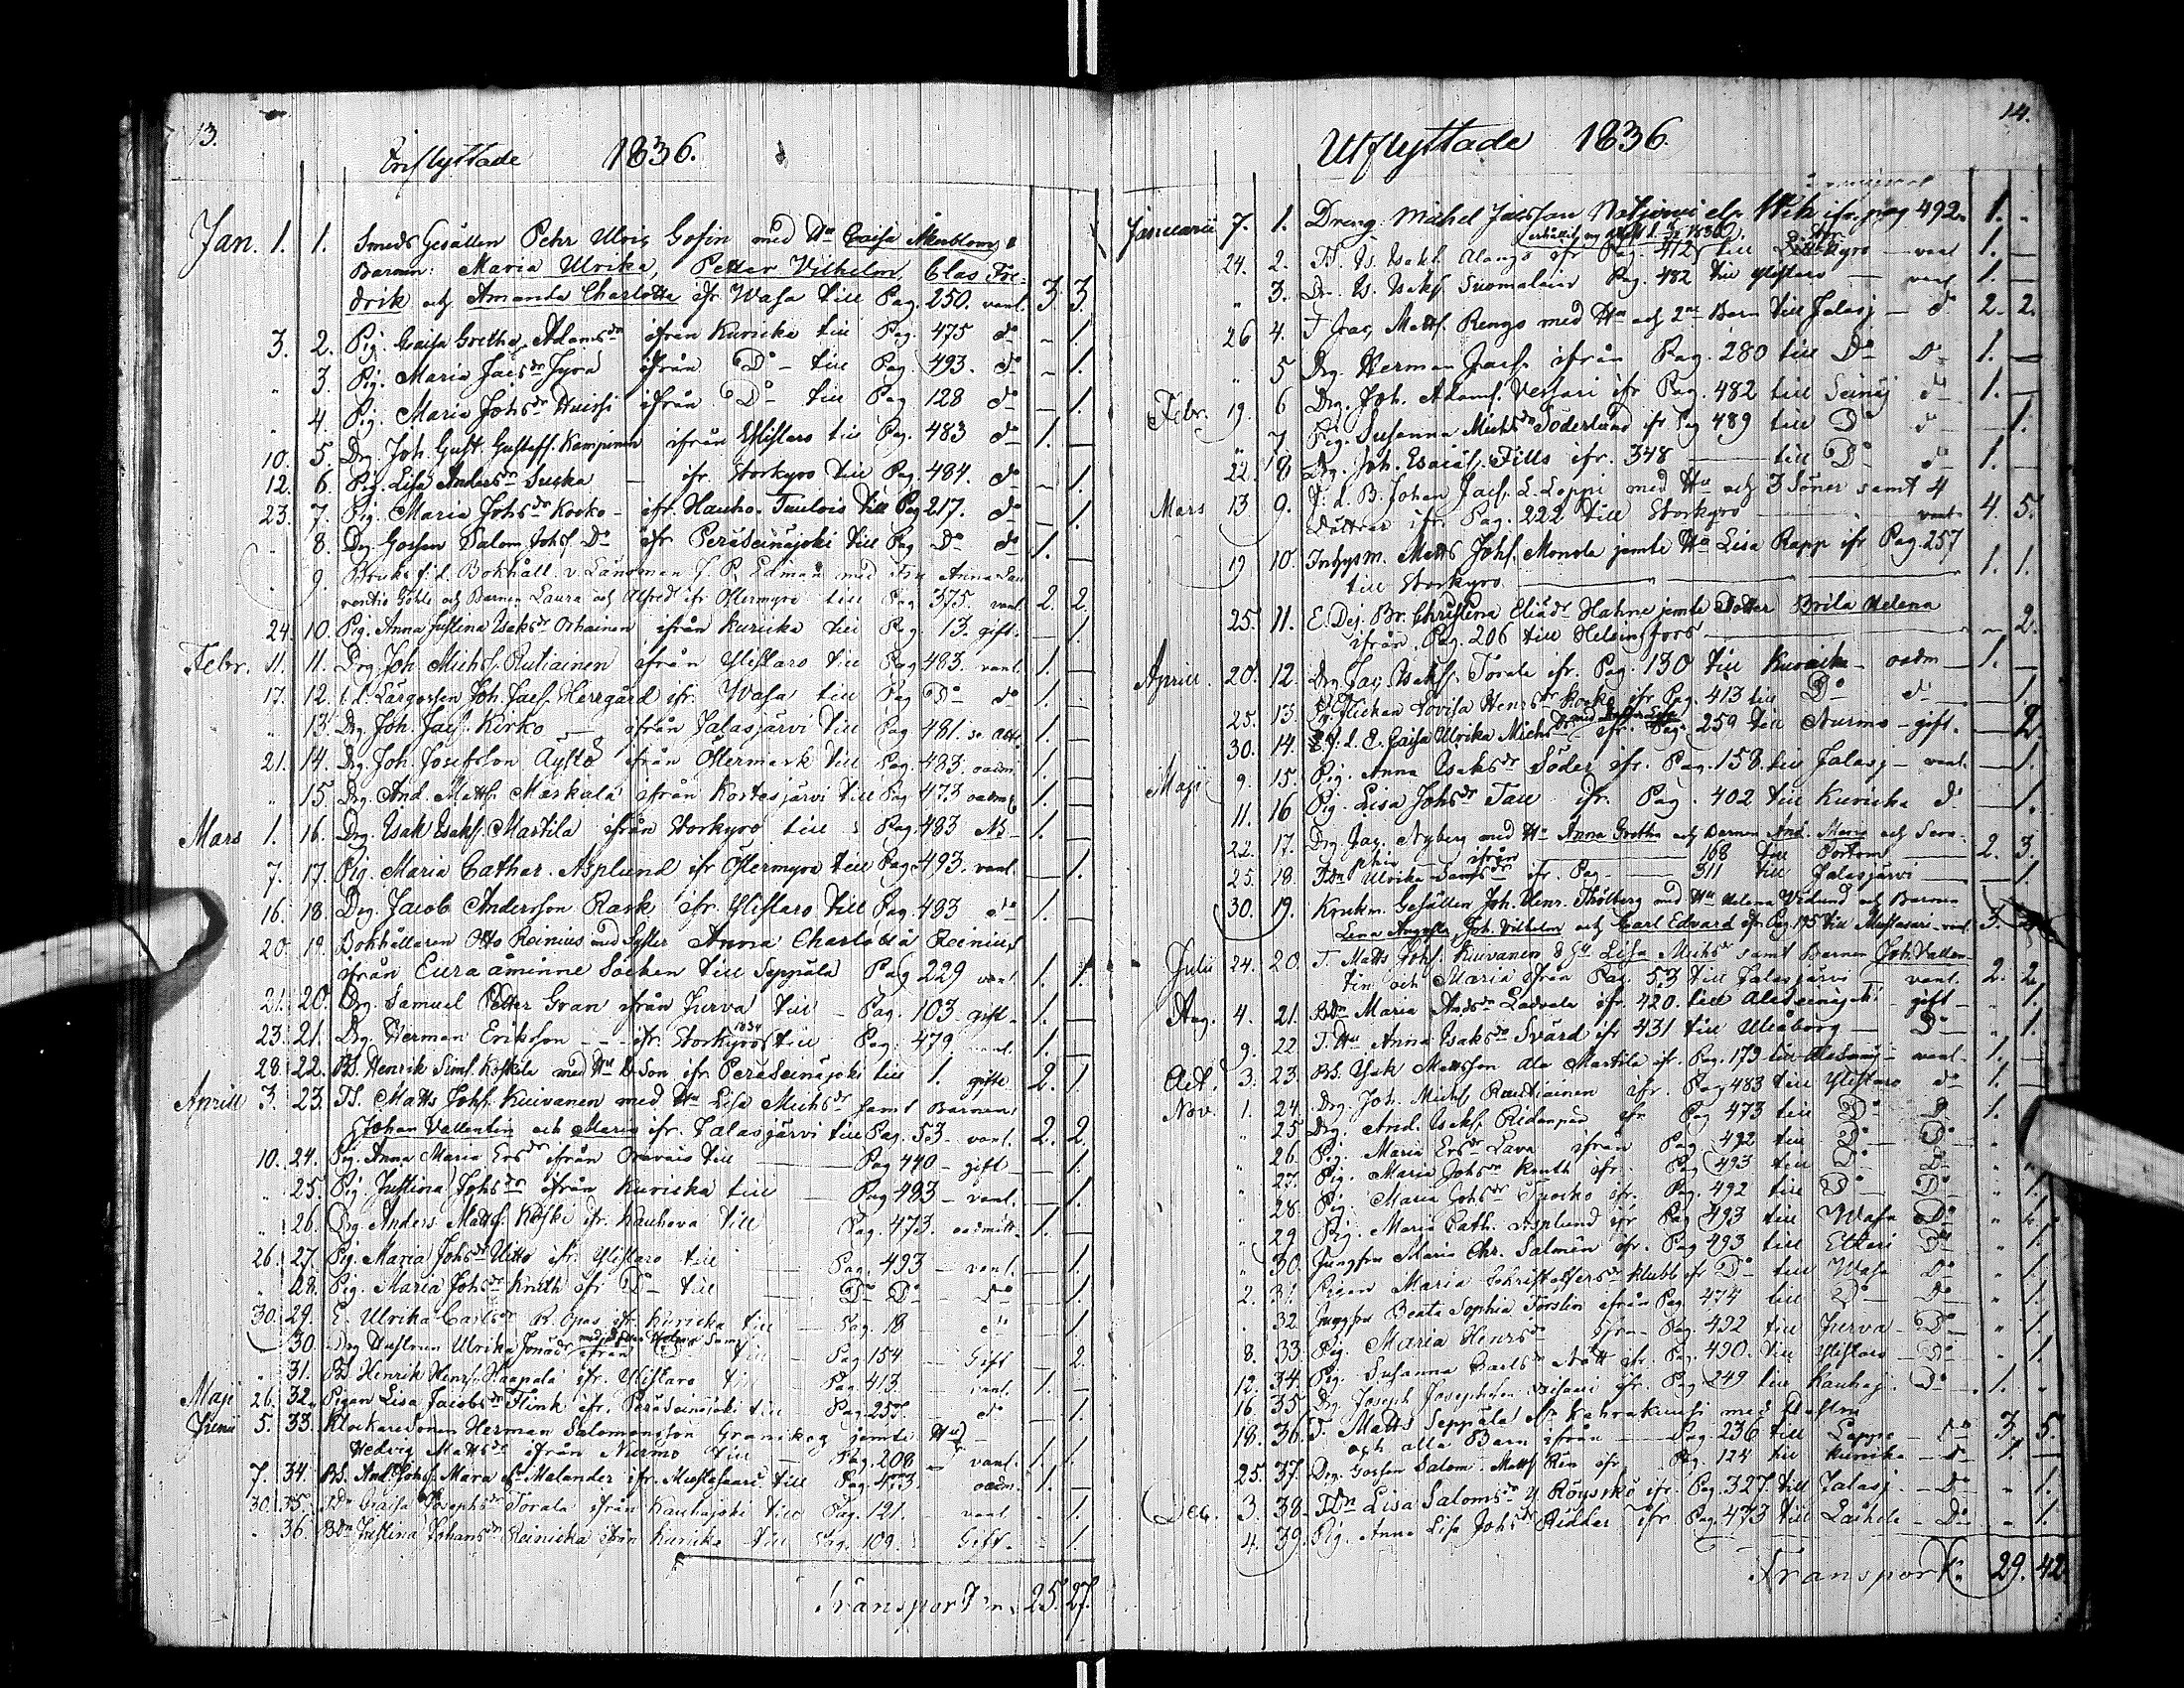 13.
Inflyttade 1836.
Jan. 1. 1. Smeds Gesällen Pehr Ulric Gosin med Hu Caisa Åkerblom,
Barnen: Maria Ulrika, Petter Vilhelm, Clas Fre-
drik och Amanda Charlotta ifr. Wasa till Pag. 250. vanl. 3. 3.
3. 2. Pig. Caisa Gretha Adamsdr ifrån Kuricka till Pag. 475 do - 1.
" 3. Pig. Maria Jacsdr Jyrä ifrån Do - till Pag. 493. do - 1.
" 4. Pig. Maria Johsdr Huissi ifrån Do - till Pag 128 do - 1.
10. 5 Drg. Joh. Gust. Gustafs. Kampinen ifrån Ylistaro till Pag. 483 do 1. -
12. 6. Pig. Lisa Andersdr Luska - ifr. Storkyro till Pag. 484. do - 1.
23. 7. Pig. Maria Johsdr Korko - ifr. Hauho. Tuulois till Pag 217. do - 1.
" 8. Drg Gossen Salom. Johs. Do ifr Peräseinäjoki till Pag Do do 1. -
" 9. Bruks f. d. Bokhåll. v. Länsman J. P. Edman med Fru Anna Lau
rentia Göhle och Barnen Laura och Alfred ifr Östermyra till Pag 375. vanl. 2. 2.
24. 10. Pig. Anna Justina Isaksdr Orhainen ifrån Kuricka till Pag. 13. gift. - 1.
Febr. 11. 11. Drg. Joh. Michs. Rutiainen ifrån Ylistaro till Pag 483. vanl. 1. -
17. 12. f. d. Lärgossen Joh. Jacs. Herrgård ifr. Wasa till Pag Do do 1. -
" 13. Drg. Joh. Jacs. Kirko - ifrån Jalasjärvi till Pag 481. 1. -
21. 14. Drg. Joh. Josefsson Äystö ifrån Östermark till Pag. 483. oadm. 1. -
" 15. Drg. And. Matts. Markula ifrån Kortesjärvi till Pag 473 oadm 1. -
Mars 1. 16. Drg. Isak Isaks. Martila ifrån Storkyro till Pag. 483 1. -
7. 17. Pig. Maria Cathar. Asplund ifr Östermyra till Pag. 493. vanl. - 1.
16. 18. Drg. Jacob Andersson Rask ifr. Ylistaro till Pag. 483 do 1. -
20. 19. Bokhållaren Otto Reinius med Syster Anna Charlotta Reinius
ifrån Euraåminne Socken till Seppälä Pag 229 vanl. 1. 1.
21. 20. Drg. Samuel Petter Gran ifrån Jurva till - Pag. 103. gift. 1. -
23. 21. Drg. Herman Eriksson - - - ifr. Storkyro 1834 till Pag. 479 vanl. 1. -
28. 22. BS. Henrik Sims. Koskela med Hu & Son ifr Peräseinäjoki till 1. gifte 2. 1.
Aprill 3. 23. TS. Matts Johs. Kuivanen med Hu Lisa Michsdr samt Barnen
Johan Vallentin och Maria ifr. Jalasjärvi till Pag. 53. vanl. 2. 2.
10. 24. Pig. Anna Maria Ersdr ifrån Oravais till Pag 440 - gift - 1.
" 25. Pig Justina Johsdr ifrån Kuricka till Pag 483 - vanl. - 1.
" 26. Drg. Anders Matts. Koski ifr. Kauhava till Pag. 473. oadmitt. 1. -
26. 27. Pig. Maria Johsdr Uitto ifr. Ylistaro till Pag. 493 - vanl. - 1.
" 28. Pig. Maria Johsdr Knuth ifr Do till Do Do Do - 1.
30. 29. E. Ulrika Carlsdr R. Ojas ifr. Kuricka till Pag. 18 do 1.
" 30. Drg Hustrun Ulrika Jonædr ifrån till - Pag 154 Gift - 2.
" 31. BD Henrik Henrs. Haapala ifr. Ylistaro till Pag. 413. vanl. 1. -
Maji 26. 32. Pigan Lisa Jacobsdr Flink ifr. Peräseinäjoki till Pag. 255. do - 1.
Junii 5. 33. Klockaredrenen Herman Salomonsson Granskog jemte Hu
Hedvig Mattsdr ifrån Nurmo till Pag. 208 - vanl. 1. 1.
7. 34. BS. And. Johs. Mara el. Malander ifr. Mustasaari till Pag. 473. oadm. 1. -
30. 35. Caisa Josephsdr Torala ifrån Kauhajoki till Pag. 191. vanl. - 1.
" 36. Bdn Justina Johansdr Reinicka ifrån Kuricka till Pag. 109. Gift. - 1.
Transport 25. 27.
14.
Utflyttade 1836.
Januarii 7. 1. Dreng. Michel Jacsson ifr. pag 492. 1. -
24. 2. Alango ifr Pag. 412 till kyro - vanl 1. -
" 3. Dr. Is. Isaks. Suomalain Pag. 482 till Ylistaro - vanl. 1. -
26 4. T. Jac. Matts. Rengo med Hu och 2ne Barn till Jalasj - do 2. 2.
" 5 Drg. Herman Jacs. ifrån Pag. 280 till Do Do 1. -
Febr. 19. 6 Drg. Joh. Adams. Versari ifr Pag. 482 till Seinäj do 1. -
" 7 Pig. Susanna Michsdr Söderlund ifr Pag 489 till Do do - 1.
22. 8. Drg. Joh. Esaias. Fills ifr. 348 till Do do 1. -
Mars 13 9. f. d. B. Johan Jacs. L. Loppi med Hu och 3 Söner samt 4
Döttrar ifr. Pag. 222 till Storkyro vanl. 4. 5.
19 10. Inhysm. Matts Johs. Monola jemte Hu Lisa Rapp ifr Pag. 257
till Storkyro 1. 1.
25. 11. E. Dej. Br. Christina Eliædr Hahne jemte Dotter Brita Helena
ifrån Pag. 206 till Helsingfors - 2.
Aprill 20. 12. Drg. Jac. Isaks. Torala ifr. Pag. 130 till Kuricka - oadm - 1. -
25. 13. Flickan Lovisa Henrsdr Korko ifr Pag. 413 till Do do - 1.
30. 14. Caisa Ulrika Michsdr ifr. Pag. 259 till Nurmo - gift. - 2
Maji 9. 15. Pig. Anna Isaksdr Söder ifr. Pag. 158. till Jalasj - vanl. - 1.
11. 16 Pig. Lisa Johsdr Tall ifr. Pag. 402 till Kuricka do - 1.
22. 17. Drg. Jac. Nyberg med Hu Anna Gretha och Barnen And. Maria och Sera-
phia ifrån 168 till Portom 2. 3.
25. 18. Tdn Ulrika ifr. Pag. 311 till Jalasjärvi - 1.
30. 19. Krukm. Gesällen Joh. Henr. Thölberg med Hu Helena Vidund och Barnen
Lena Augusta, Joh. Vilhelm och Carl Edvard ifr Pag. 195 till Mustasari - vanl. 3.
Julii 24. 20. T. Matts Johs. Kuivanen & Hu Lisa Michsdr samt Barnen Joh. Vallen-
tin och Maria ifrån Pag. 53 till Jalasjärvi - vanl. 2. 2.
Aug. 4. 21. Bdn Maria Andsdr Ladvala ifr. 420. till Alaseinäjoki gift - 1.
9. 22 T. Hu Anna Isaksdr Svärd ifr 431 till Uleåborg - Do " 1.
Oct. 3. 23. BS. Isak Mattsson Ala Martila ifr. Pag. 179 till - vanl. 1. -
Nov. 1. 24. Drg. Joh. Michs. Rautiainen ifr. Pag 483 till Ylistaro do 1. -
" 25 Drg. And. Isaks. Ridanpää ifr Pag 473 till Do Do 1.
" 26. Pig. Maria Ersdr Lava ifrån Pag 492 till Do Do "
" 27. Pig. Maria Johsdr Knuth ifr. Pag 493 till Do Do "
" 28 Pig. Maria Johsdr ifr. Pag. 492 till Do Do " 1.
" 29 Pig. Maria Cath. Asplund ifr Pag 493 till Wasa Do " 1.
" 30. Jungfru Maria Chr. Salmén ifr. Pag 493 till Etseri Do " 1.
2. 31. Pigan Maria Christoffersdr Klubb ifr Do till Wasa Do " 1.
" 32. Jungfru Beata Sophia Forslin ifrån Pag 474 till Do Do " 1.
8. 33. Pig. Maria Henrsdr ifrån Pag. 492 till Jurva - Do " 1.
12. 34. Pig. Susanna Carlsdr Nått ifr. Pag. 490. till Ylistaro - Do " 1.
16. 35. Drg. Joseph Josephsson ifr. Pag 249 till Kauhaj. Do 1. "
18. 36. T. Matts Seppälä el. Kahrakuusi med Hustru
och alla Barn ifrån Pag. 236 till Lappo - Do 3. 5.
25. 37. Drg. Gossen Salom. Matts ifr. Pag. 124 till Kuricka - Do 1. -
Dec. 3. 38. Tdn Lisa Salomsdr Y. Röyskö ifr. Pag. 327. till Jalasj. - Do " 1.
4. 39. Pig. Anna Lisa Johsdr Ridder ifr Pag. 473 till Laihela - Do " 1.
Transport. 29. 42.